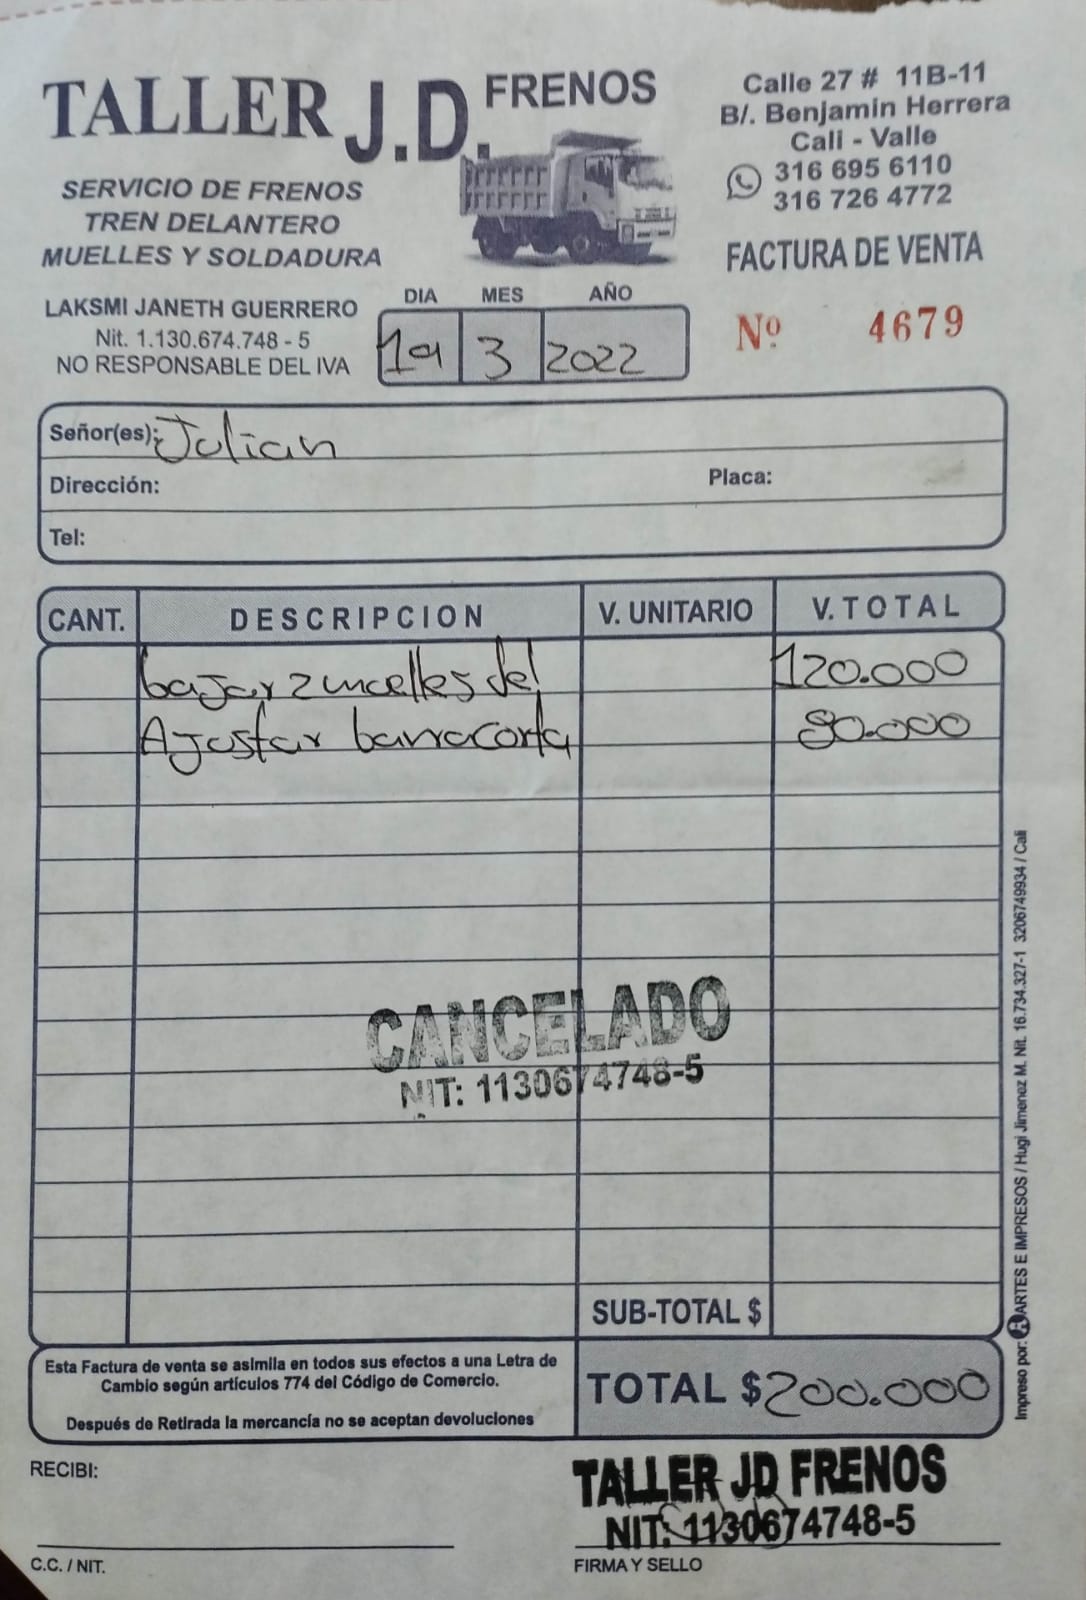 TALLER J.D. FRENOS
SERVICIO DE FRENOS
TREN DELANTERO
MUELLES Y SOLDADURA
Calle 27 # 11B-11
B/. Benjamin Herrera
Cali - Valle
316 695 6110
316 726 4772
FACTURA DE VENTA
LAKSMI JANETH GUERRERO
Nit. 1.130.674.748 - 5
NO RESPONSABLE DEL IVA
DIA MES AÑO
19 3 2022
Nº 4679
Señor(es): Julian
Dirección: Placa:
Tel:
CANT. DESCRIPCION V. UNITARIO V. TOTAL
bajar 2 muelles del 120.000
Ajustar barra corta 80.000
CANCELADO
NIT: 1130674748-5
SUB-TOTAL $
Esta Factura de venta se asimila en todos sus efectos a una Letra de
Cambio según artículos 774 del Código de Comercio.
Después de Retirada la mercancía no se aceptan devoluciones
TOTAL $ 200.000
RECIBI:
TALLER JD FRENOS
NIT: 1130674748-5
C.C. / NIT.
FIRMA Y SELLO
Impreso por: ARTES E IMPRESOS / Hugi Jimenez M. Nit. 16.734.327-1 3206749934 / Cali